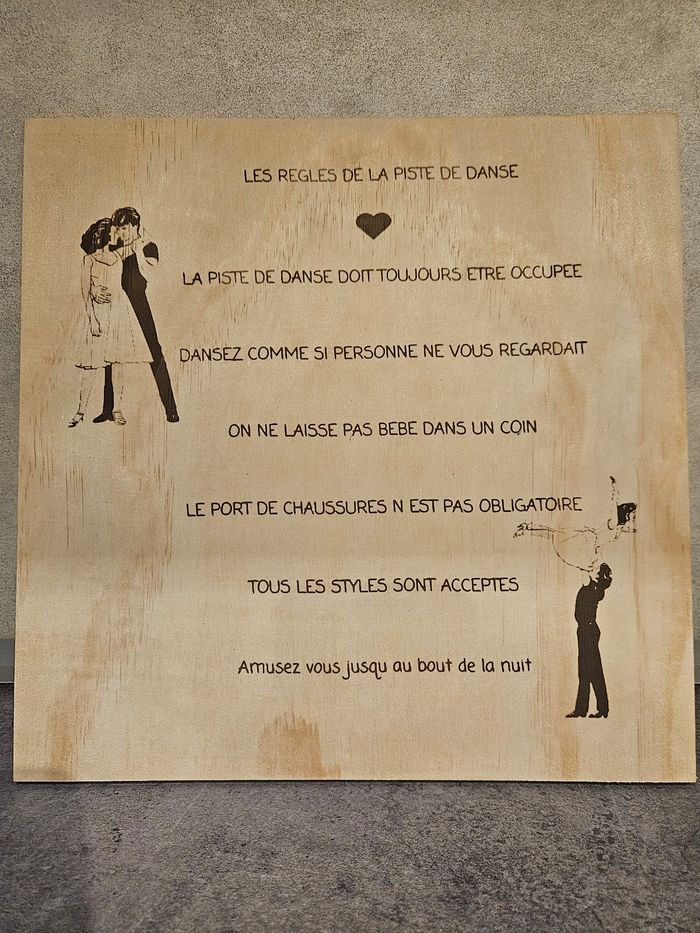 LES REGLES DE LA PISTE DE DANSE
LA PISTE DE DANSE DOIT TOUJOURS ETRE OCCUPEE
DANSEZ COMME SI PERSONNE NE VOUS REGARDAIT
ON NE LAISSE PAS BEBE DANS UN COIN
LE PORT DE CHAUSSURES N EST PAS OBLIGATOIRE
TOUS LES STYLES SONT ACCEPTES
Amusez vous jusqu au bout de la nuit